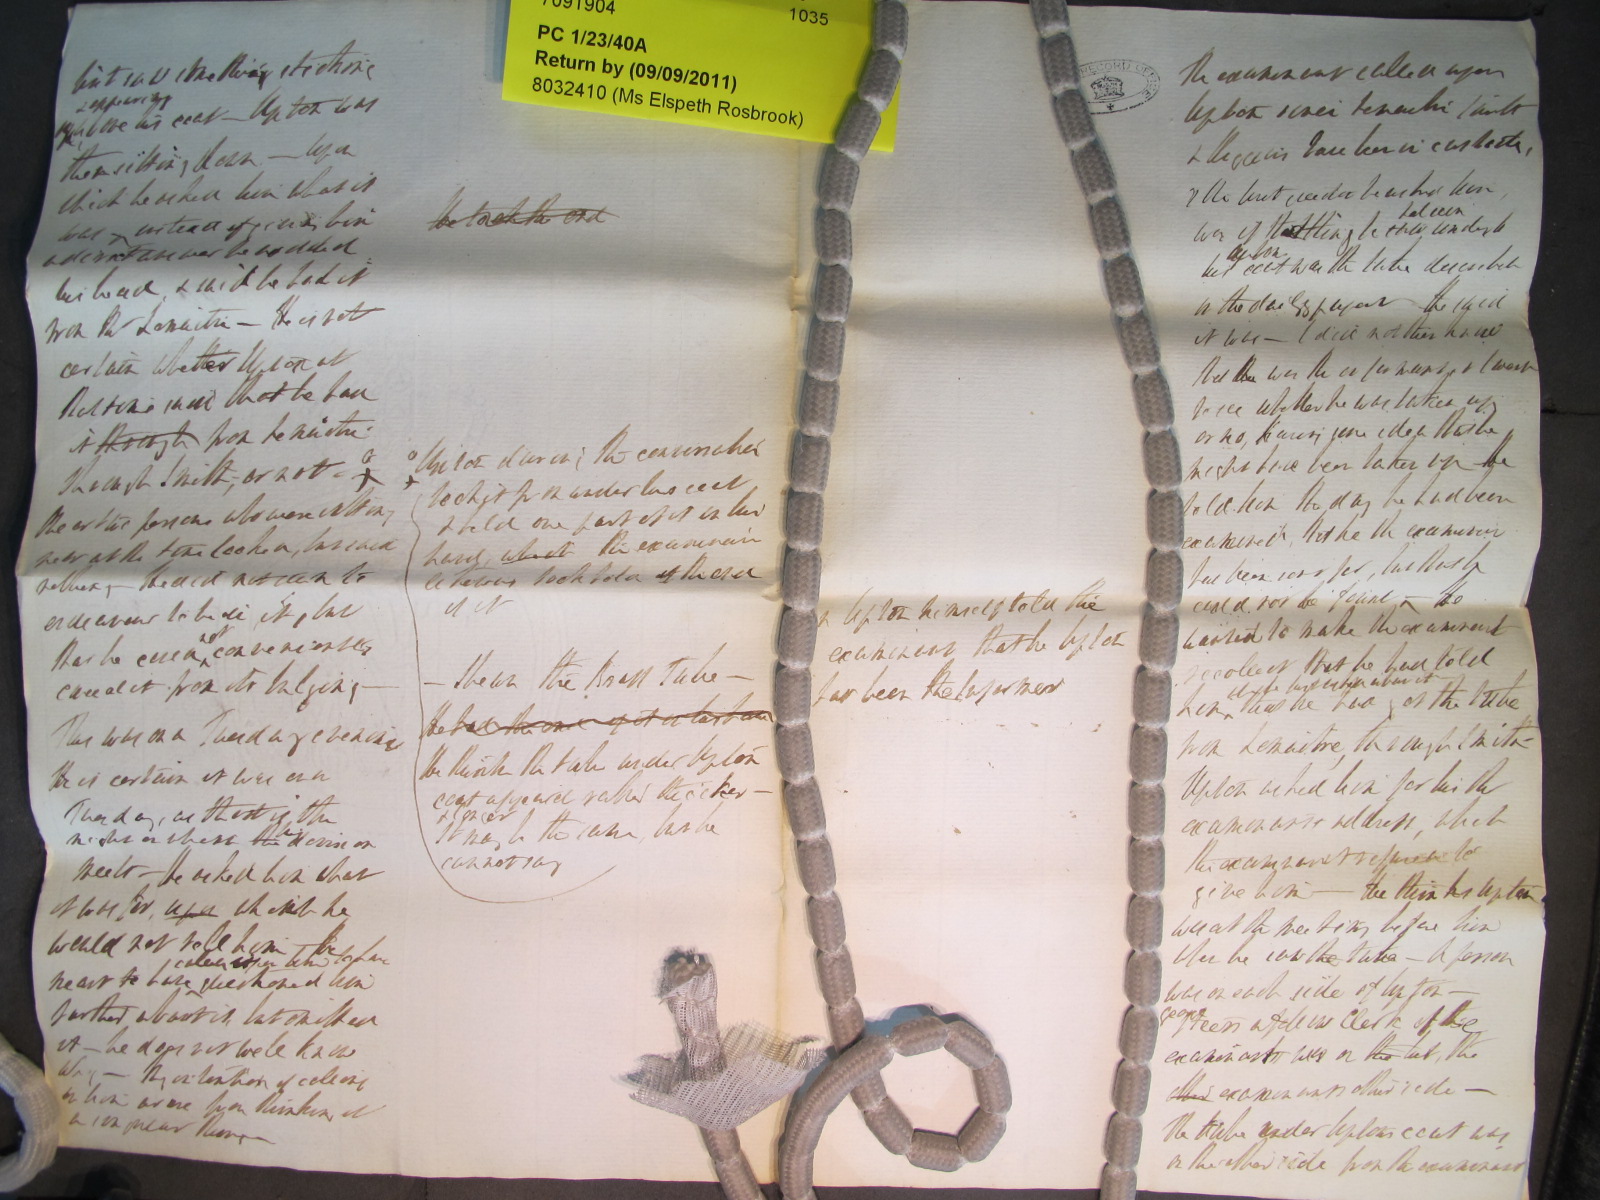 7091904
1035
PC 1/23/40A
Return by (09/09/2011)
8032410 (Ms Elspeth Rosbrook)
RECORD OF
but saw something sticking
& appearing
above his coat — Upton was
then sitting down — upon
which he asked him what it
was — instead of giving him
a direct answer he nodded
his head, & said he had it
from Lemaitre — He is not
certain whether Upton at
that time said that he had
it through from Lemaitre
through Smith, or not —
the other persons who were sitting
near at the time looked, but said
nothing — he did not seem to
endeavour to hide it, but
that he could not conveniently
conceal it from its bulging —
This was on a Tuesday evening
He is certain it was on a
Tuesday, as that is the
night on which the division
meets — he asked him what
it was for, upon which he
would not tell him
meant to have questioned him
further about it, but omitted
it — he does not well know
why — the intention of calling
on him arose from thinking it
a singular thing —
he took the end
Upton during the conversation
took it from under his coat
& held one part of it in his
hand, whilst the examinant
took hold of the end
of it
— Shewn the Brass Tube —
He had the end of it in his hand
He thinks the tube under Upton
coat appeared rather thicker —
& longer
It may be the same, but he
cannot say
& Upton himself told this
examinant that he Upton
had been the Informer
The examinant called upon
Upton since Lemaitre Smith
& Higgins have been in custody,
& the first question he asked him,
was if the thing he had seen under
Upton
his coat was the tube described
in the daily papers — he said
it was — I did not then know
that he was the informant, & I went
to see whether he was taken up
or no, having some idea that he
might have been taken up — he
told him the day he had been
examined, that he the examinant
had been sent for, but that he
could not be found — he
wanted to make the examinant
recollect that he had told
him that he had got the tube
from Lemaitre, through Smith —
Upton asked him for his the
examinants address, which
the examinant refused to
give him — He thinks Upton
was at the meeting before him
when he saw the tube — A person
was on each side of Upton —
George
Steers clerk of this
examinants was on the left, the
other examinants other side —
the tube under Uptons coat was
on the other side from the examinant